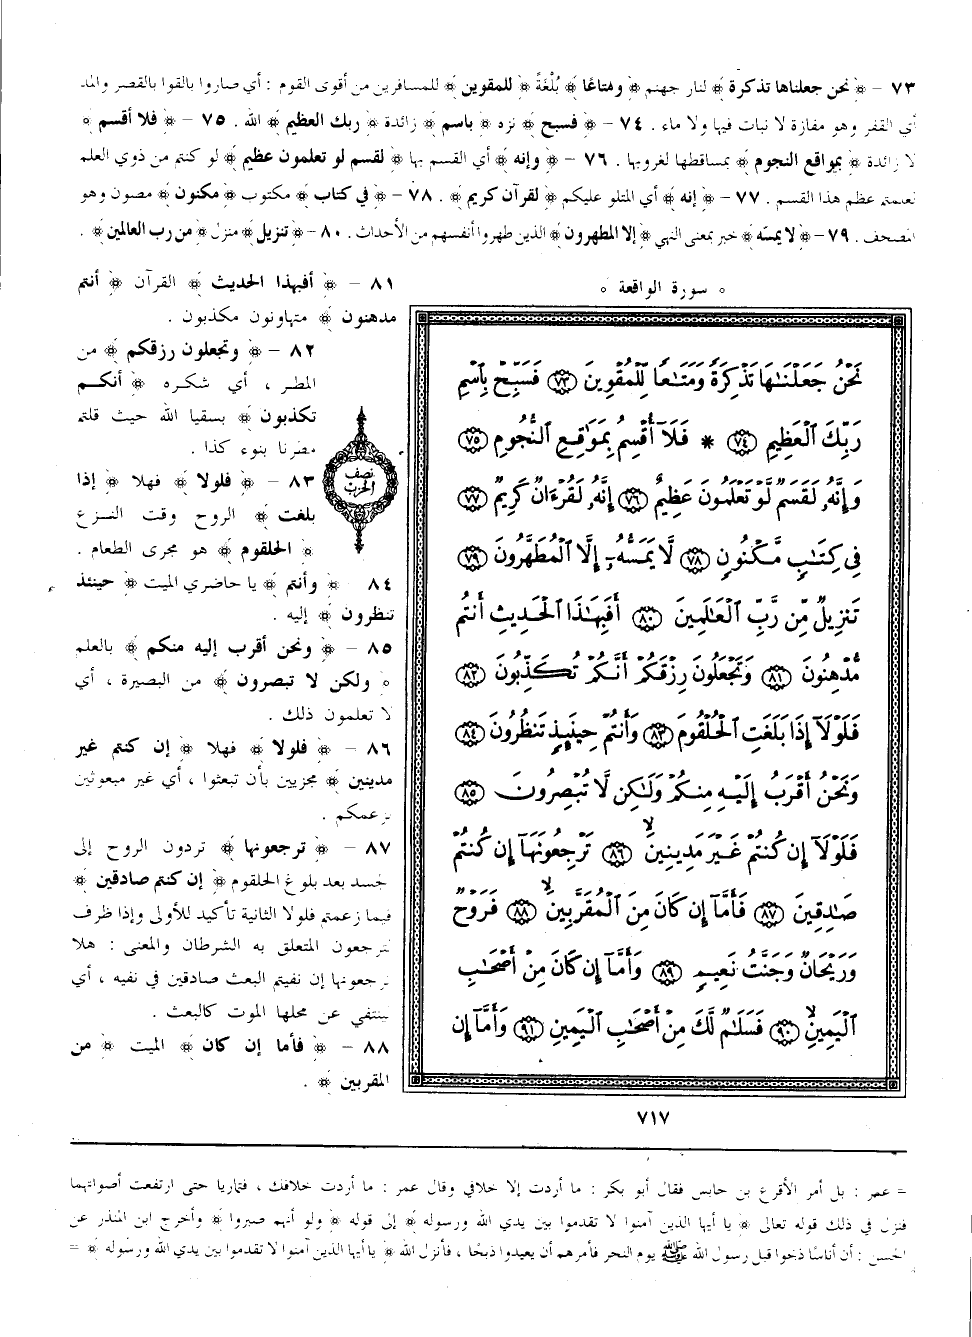 ٧٣ - ﴿ نحن جعلناها تذكرة ﴾ لنار جهنم ﴿ ومتاعًا ﴾ بُلْغَةً ﴿ للمقوين ﴾ للمسافرين من أقوى القوم : أي صاروا بالقوا بالقصر والمد
أي القفر وهو مفازة لا نبات فيها ولا ماء . ٧٤ - ﴿ فسبح ﴾ نزه ﴿ باسم ﴾ زائدة ﴿ ربك العظيم ﴾ الله . ٧٥ - ﴿ فلا أقسم ﴾
لا زائدة ﴿ بمواقع النجوم ﴾ بمساقطها لغروبها . ٧٦ - ﴿ وإنه ﴾ أي القسم بها ﴿ لقسم لو تعلمون عظيم ﴾ لو كنتم من ذوي العلم
لعلمتم عظم هذا القسم . ٧٧ - ﴿ إنه ﴾ أي المتلو عليكم ﴿ لقرآن كريم ﴾ . ٧٨ - ﴿ في كتاب ﴾ مكتوب ﴿ مكنون ﴾ مصون وهو
المصحف . ٧٩ - ﴿ لا يمسّه ﴾ خبر بمعنى النهي ﴿ إلا المطهرون ﴾ الذين طهروا أنفسهم من الأحداث . ٨٠ - ﴿ تنزيل ﴾ منزل ﴿ من رب العالمين ﴾ .
﴿ سورة الواقعة ﴾
نَحْنُ جَعَلْنَٰهَا تَذْكِرَةً وَمَتَٰعًا لِّلْمُقْوِينَ ٧٣ فَسَبِّحْ بِٱسْمِ
رَبِّكَ ٱلْعَظِيمِ ٧٤ * فَلَآ أُقْسِمُ بِمَوَٰقِعِ ٱلنُّجُومِ ٧٥
وَإِنَّهُۥ لَقَسَمٌ لَّوْ تَعْلَمُونَ عَظِيمٌ ٧٦ إِنَّهُۥ لَقُرْءَانٌ كَرِيمٌ ٧٧
فِى كِتَٰبٍ مَّكْنُونٍ ٧٨ لَّا يَمَسُّهُۥٓ إِلَّا ٱلْمُطَهَّرُونَ ٧٩
تَنزِيلٌ مِّن رَّبِّ ٱلْعَٰلَمِينَ ٨٠ أَفَبِهَٰذَا ٱلْحَدِيثِ أَنتُم
مُّدْهِنُونَ ٨١ وَتَجْعَلُونَ رِزْقَكُمْ أَنَّكُمْ تُكَذِّبُونَ ٨٢
فَلَوْلَآ إِذَا بَلَغَتِ ٱلْحُلْقُومَ ٨٣ وَأَنتُمْ حِينَئِذٍ تَنظُرُونَ ٨٤
وَنَحْنُ أَقْرَبُ إِلَيْهِ مِنكُمْ وَلَٰكِن لَّا تُبْصِرُونَ ٨٥
فَلَوْلَآ إِن كُنتُمْ غَيْرَ مَدِينِينَ ٨٦ تَرْجِعُونَهَآ إِن كُنتُمْ
صَٰدِقِينَ ٨٧ فَأَمَّآ إِن كَانَ مِنَ ٱلْمُقَرَّبِينَ ٨٨ فَرَوْحٌ
وَرَيْحَانٌ وَجَنَّتُ نَعِيمٍ ٨٩ وَأَمَّآ إِن كَانَ مِنْ أَصْحَٰبِ
ٱلْيَمِينِ ٩٠ فَسَلَٰمٌ لَّكَ مِنْ أَصْحَٰبِ ٱلْيَمِينِ ٩١ وَأَمَّآ إِن
٨١ - ﴿ أفبهذا الحديث ﴾ القرآن ﴿ أنتم
مدهنون ﴾ متهاونون مكذبون .
٨٢ - ﴿ وتجعلون رزقكم ﴾ من
المطر ، أي شكره ﴿ أنكم
تكذبون ﴾ بسقيا الله حيث قلتم
مطرنا بنوء كذا .
٨٣ - ﴿ فلولا ﴾ فهلا ﴿ إذا
بلغت ﴾ الروح وقت النزع
﴿ الحلقوم ﴾ هو مجرى الطعام .
٨٤ - ﴿ وأنتم ﴾ يا حاضري الميت ﴿ حينئذ
تنظرون ﴾ إليه .
٨٥ - ﴿ ونحن أقرب إليه منكم ﴾ بالعلم
﴿ ولكن لا تبصرون ﴾ من البصيرة ، أي
لا تعلمون ذلك .
٨٦ - ﴿ فلولا ﴾ فهلا ﴿ إن كنتم غير
مدينين ﴾ مجزيين بأن تبعثوا ، أي غير مبعوثين
بزعمكم .
٨٧ - ﴿ ترجعونها ﴾ تردون الروح إلى
الجسد بعد بلوغ الحلقوم ﴿ إن كنتم صادقين ﴾
فيما زعمتم فلولا الثانية تأكيد للأولى وإذا ظرف
لترجعون المتعلق به الشرطان والمعنى : هلا
ترجعونها إن نفيتم البعث صادقين في نفيه ، أي
لينتفي عن محلها الموت كالبعث .
٨٨ - ﴿ فأما إن كان ﴾ الميت ﴿ من
المقربين ﴾ .
نصف
الحزب
٧١٧
= عمر : بل أمر الأقرع بن حابس فقال أبو بكر : ما أردت إلا خلافي وقال عمر : ما أردت خلافك ، فتماريا حتى ارتفعت أصواتهما
فنزل في ذلك قوله تعالى ﴿ يا أيها الذين آمنوا لا تقدموا بين يدي الله ورسوله ﴾ إلى قوله ﴿ ولو أنهم صبروا ﴾ وأخرج ابن المنذر عن
الحسن : أن أناسًا ذبحوا قبل رسول الله ﷺ يوم النحر فأمرهم أن يعيدوا ذبحًا ، فأنزل الله ﴿ يا أيها الذين آمنوا لا تقدموا بين يدي الله ورسوله ﴾ =